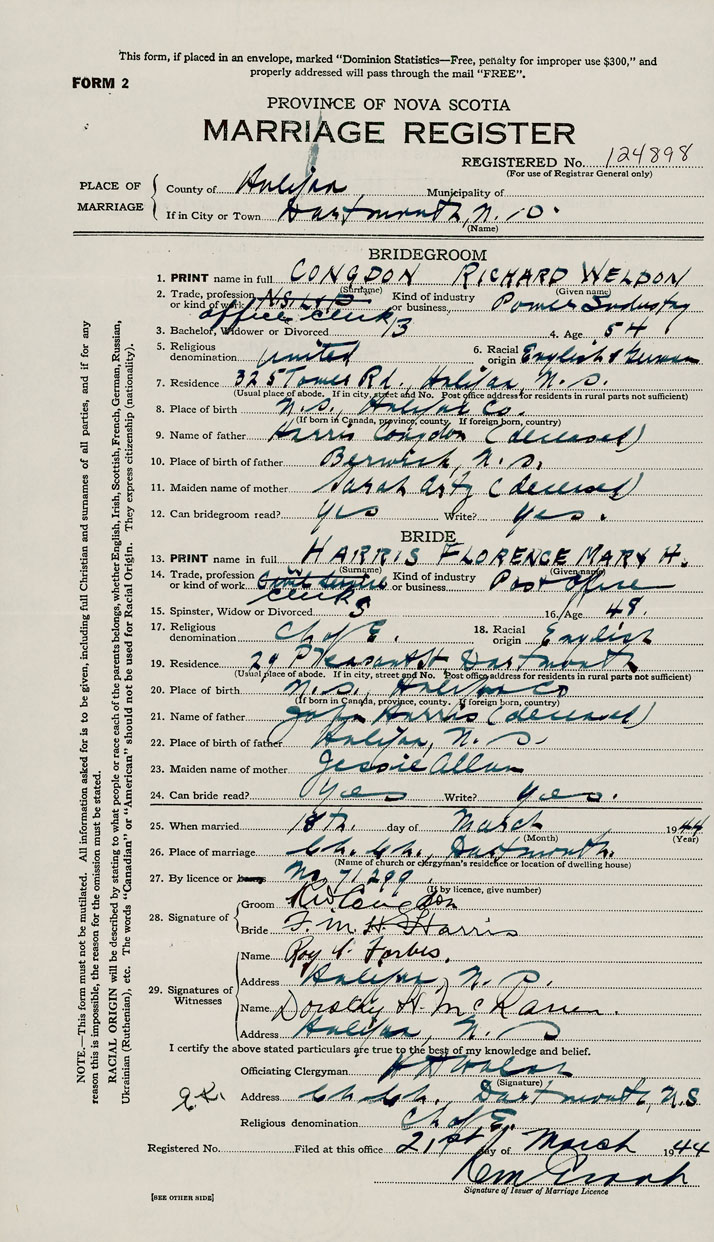 This form, if placed in an envelope, marked "Dominion Statistics—Free, penalty for improper use $300," and
properly addressed will pass through the mail "FREE".
FORM 2
PROVINCE OF NOVA SCOTIA
MARRIAGE REGISTER
REGISTERED No. 124898
(For use of Registrar General only)
PLACE OF MARRIAGE
County of Halifax Municipality of
If in City or Town Dartmouth, N.S.
(Name)
BRIDEGROOM
1. PRINT name in full CONGDON RICHARD WELDON
(Surname) (Given name)
2. Trade, profession or kind of work office clerk Kind of industry or business, Power Industry
3. Bachelor, Widower or Divorced B 4. Age 54
5. Religious denomination United 6. Racial origin English & German
7. Residence 325 Tower Rd., Halifax, N.S.
(Usual place of abode. If in city, street and No. Post office address for residents in rural parts not sufficient)
8. Place of birth N.S., Halifax Co.
(If born in Canada, province, county. If foreign born, country)
9. Name of father Harris Congdon (deceased)
10. Place of birth of father Berwick, N.S.
11. Maiden name of mother Sarah (deceased)
12. Can bridegroom read? yes Write? yes.
BRIDE
13. PRINT name in full HARRIS FLORENCE MARY H.
(Surname) (Given name)
14. Trade, profession or kind of work Civil Service clerk Kind of industry or business Post Office
15. Spinster, Widow or Divorced S 16. Age 48.
17. Religious denomination Ch of E. 18. Racial origin English
19. Residence 29 Pleasant St Dartmouth
(Usual place of abode. If in city, street and No. Post office address for residents in rural parts not sufficient)
20. Place of birth N.S., Halifax Co
(If born in Canada, province, county. If foreign born, country)
21. Name of father John Harris (deceased)
22. Place of birth of father Halifax, N.S.
23. Maiden name of mother Jessie Allan
24. Can bride read? Yes Write? yes.
25. When married 18th. day of March 1944
(Month) (Year)
26. Place of marriage Ch. Ch., Dartmouth.
(Name of church or clergyman's residence or location of dwelling house)
27. By licence or banns No 71299
(If by licence, give number)
28. Signature of
Groom RW Congdon
Bride F. M. H. Harris
29. Signatures of Witnesses
Name Roy V. Forbes.
Address Halifax, N.S.
Name Dorothy H
Address Halifax, N.S
I certify the above stated particulars are true to the best of my knowledge and belief.
Officiating Clergyman
(Signature)
Address Ch. Ch., Dartmouth, N.S
Religious denomination Ch of E.
Registered No. Filed at this office 21st day of March 1944
Signature of Issuer of Marriage Licence
[SEE OTHER SIDE]
NOTE.—This form must not be mutilated. All information asked for is to be given, including full Christian and surnames of all parties, and if for any
reason this is impossible, the reason for the omission must be stated.
RACIAL ORIGIN will be described by stating to what people or race each of the parents belongs, whether English, Irish, Scottish, French, German, Russian,
Ukrainian (Ruthenian), etc. The words "Canadian" or "American" should not be used for Racial Origin. They express citizenship (nationality).